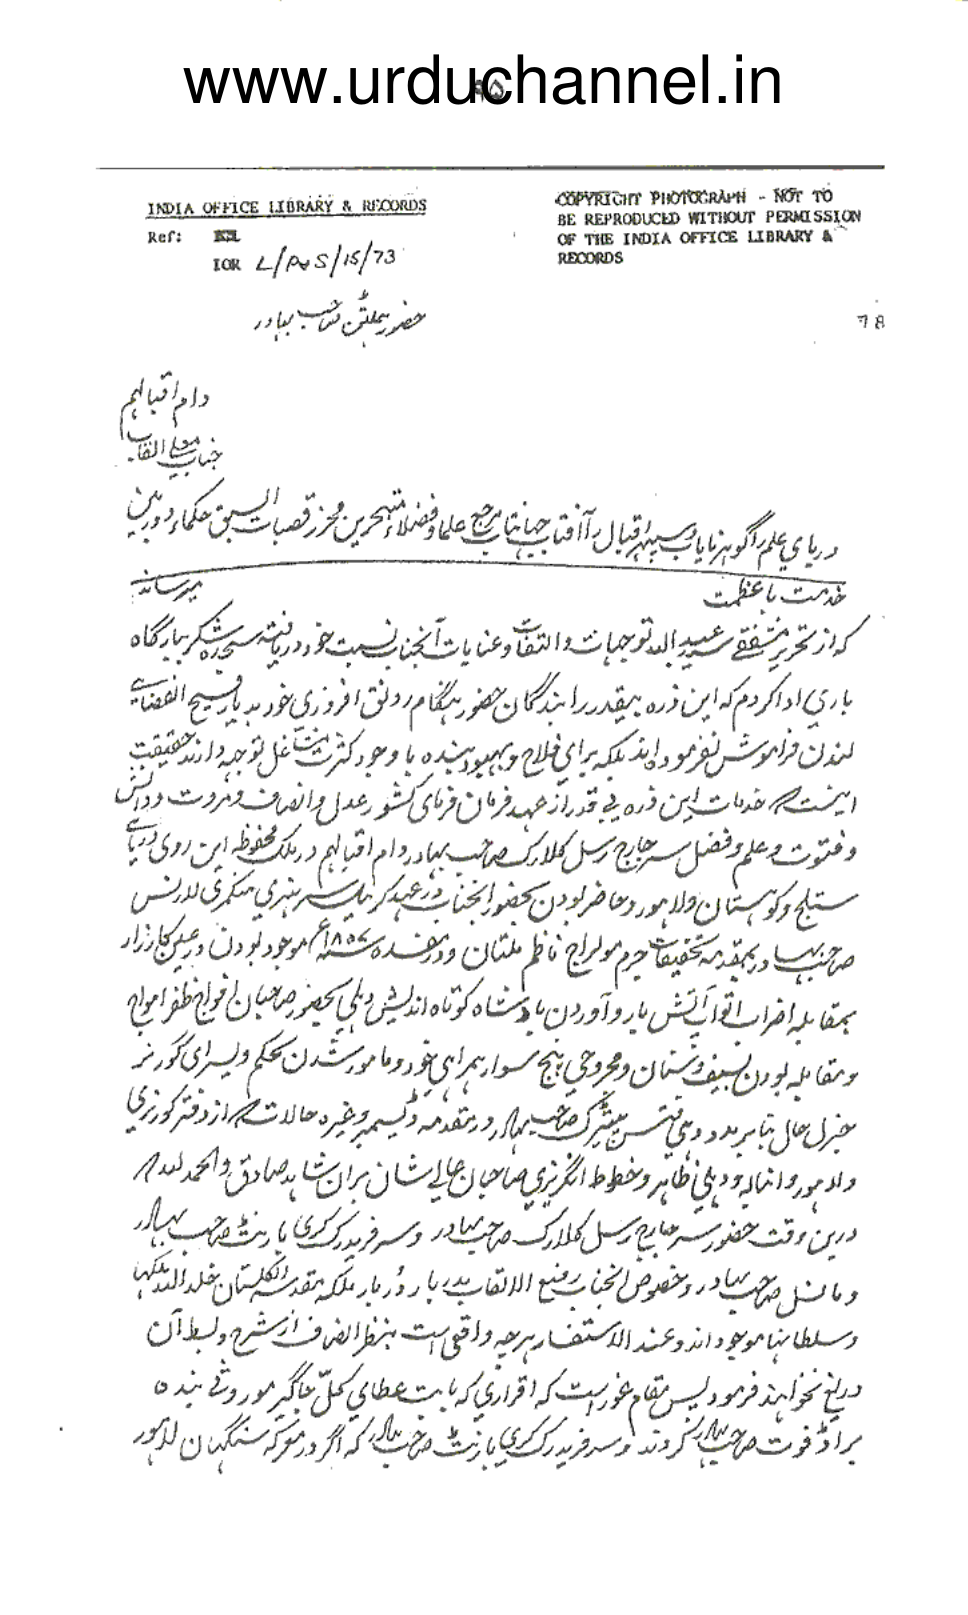 www.urduchannel.in
۹۵
INDIA OFFICE LIBRARY & RECORDS
Ref:
IOR L/P&S/15/73
COPYRIGHT PHOTOGRAPH - NOT TO
BE REPRODUCED WITHOUT PERMISSION
OF THE INDIA OFFICE LIBRARY &
RECORDS
78
حضور ہملٹن صاحب بہادر
دام اقبالہم
جناب معلی القاب
دریای علم را گوہر نایاب و سپہر اقبال را آفتاب جہانتاب مرجع علما و فضلاء متبحرین محرز قصبات السبق حکماء دوربین
خدمت با عظمت میرساند
کہ از تحریر مشفقی سید عبد اللہ توجہات و التفات و عنایات آنجناب نسبت خود دریافتہ سجدہ شکر ببارگاہ
باری ادا کردم کہ این ذرہ بیقدر را بندگان حضور ہنگام رونق افروزی خود بدیار فسیح الفضای
لندن فراموش نفرمودہ اند بلکہ برای فلاح و بہبود بندہ با وجود کثرت مشاغل توجہ دارند حقیقت
اینست کہ خدمات این ذرہ بی قدر از عہد فرمان فرمای کشور عدل و انصاف و مروت و دانش
و فتوت و علم و فضل سر جارج رسل کلارک صاحب بہادر دام اقبالہم در ملک محفوظہ این روی دریای
ستلج و کوہستان و لاہور و حاضر بودن بحضور آنجناب در عہد کرنیل سر ہنری منٹگمری لارنس
صاحب بہادر بمقدمہ تحقیقات جرم مولراج ناظم ملتان و در مفسدہ ۱۸۵۷ع موجود بودن در عین کارزار
بمقابلہ اضراب اتواپ آتش بار و آوردن بادشاہ کوتاہ اندیش دہلی بحضور صاحبان افواج ظفر امواج
و مقابلہ بودن بسیف و سنان و مجروحی پنج سوار ہمراہی خود و مامور شدن بحکم ویسرای گورنر
جنرل حال بنا بر مدد دہی صاحب بہادر در مقدمہ و غیرہ حالات کہ از دفتر گورنری
و لاہور و انبالہ و دہلی ظاہر و خطوط انگریزی صاحبان عالی شان بران شاہد صادق و الحمد للہ کہ
درین وقت حضور سر جارج رسل کلارک صاحب بہادر و سر فریدرک کری بارنٹ صاحب بہادر
و مانسل صاحب بہادر و خصوص آنجناب رفیع الالقاب بدربار دُربار ملکہ مقدسہ انگلستان خلد اللہ ملکہا
و سلطانہا موجود اند و عند الاستفسار ہرچہ واقعی است بنظر انصاف از شرح و بسط آن
دریغ نخواہند فرمود پس مقام غور است کہ اقراری کہ بابت عطای کل جاگیر موروثی بندہ
براڈ فوت صاحب بہادر کردند و سر فریدرک کری بارنٹ صاحب بہادر کہ اگر در معرکہ سنگہان لاہور